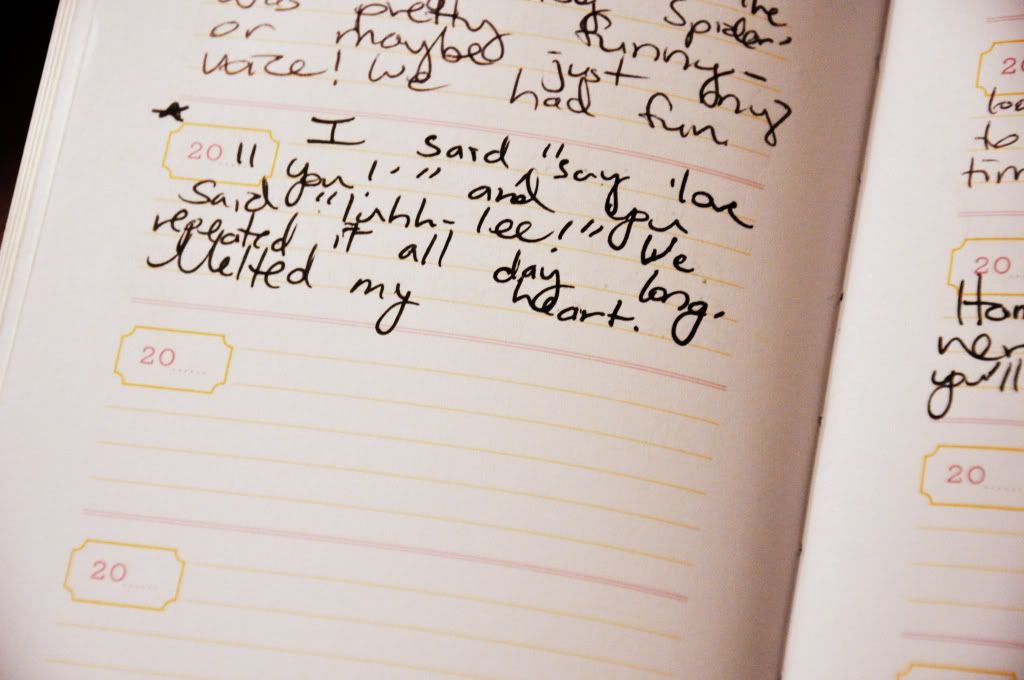 the
was pretty Spider,
or maybe funny-
voice! We just my
had fun
★
2011 I said, "say 'love
you!'" and you
said "luhh-lee!" We
repeated it all day long.
Melted my heart.
20
20
20
to
tim
20
Hom
ner
you'll
20